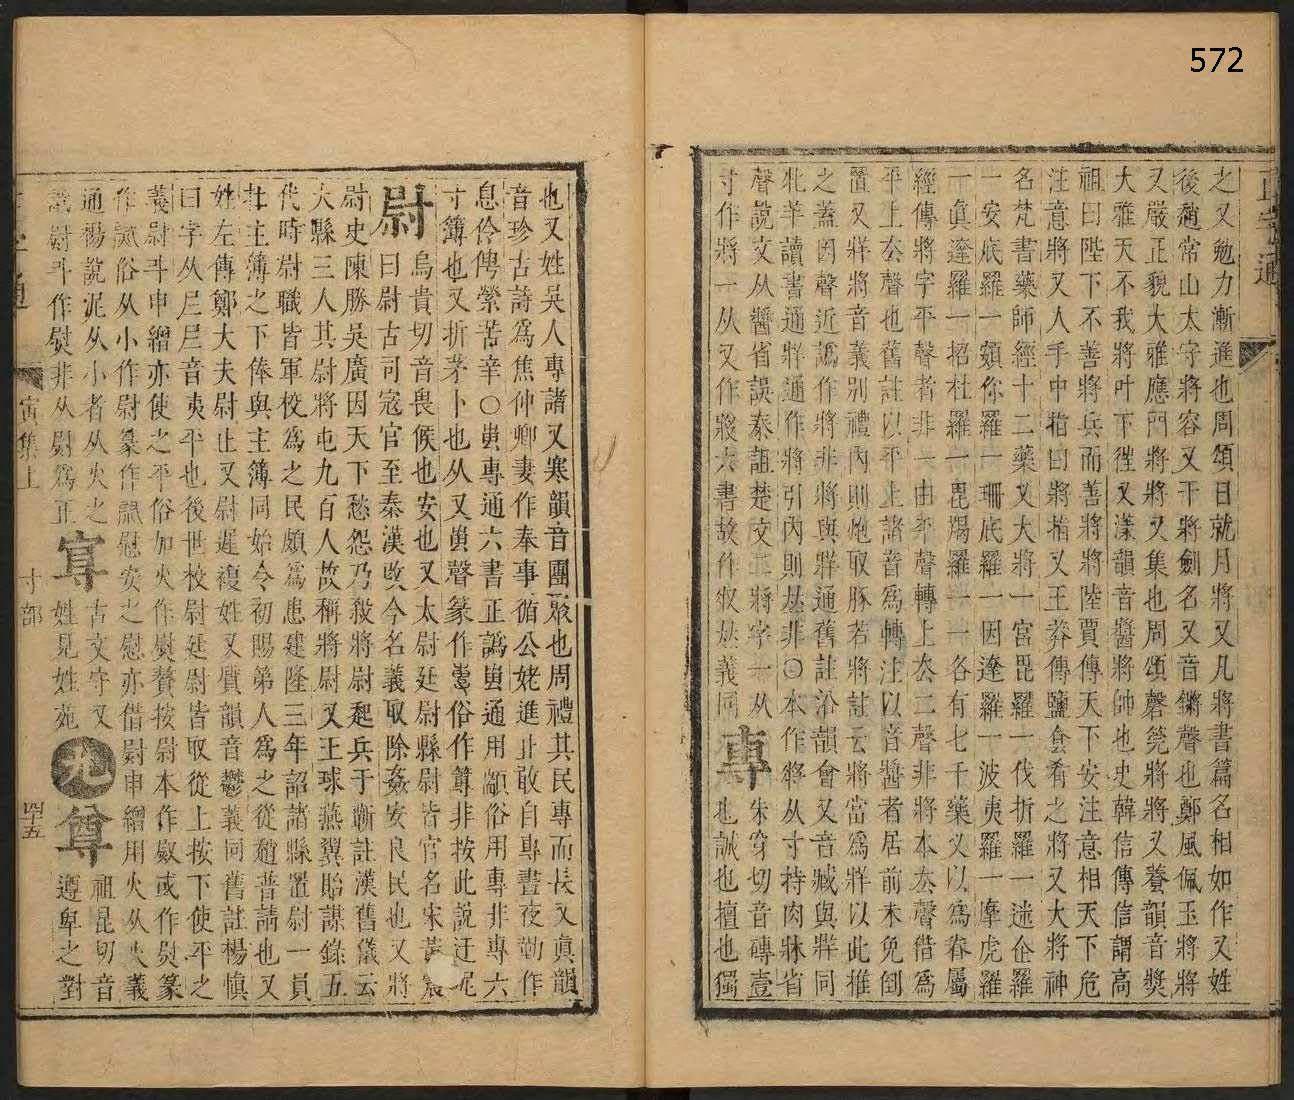 572
正字通
之又勉力漸進也周頌日就月將又凡將書篇名相如作又姓
後趙常山太守將容又干將劍名又音鏘聲也鄭風佩玉將將
又嚴正貌大雅應門將將又集也周頌磬筦將將又養韻音奬
大雅天不我將叶下徃又漾韻音醬將帥也史韓信傳信謂高
祖曰陛下不善將兵而善將將陸賈傳天下安注意相天下危
注意將又人手中指曰將指又王莽傳鹽食肴之將又大將神
名梵書藥師經十二藥乂大將一宮毘羅一伐折羅一迷企羅
一安底羅一頞你羅一珊底羅一因達羅一波夷羅一摩虎羅
一眞達羅一招杜羅一毘羯羅一一各有七千藥乂以爲眷屬
經傳將字平聲者非一由平聲轉上厺二聲非將本厺聲借爲
平上厺聲也舊註以平上諸音爲轉注以音醬者居前未免倒
置又牂將音義别禮內則炮取豚若將註云將當爲牂以此推
之蓋因聲近譌作將非將與牂通舊註沿韻會又音臧與牂同
牝羊讀書通牂通作將引內則𠀤非〇本作將从寸持肉牀省
聲說文从醬省誤秦詛楚文王將字一从
寸作將一从又作㢡六書故作𢪇𠀤義同
專
朱穿切音磚壹
也誠也擅也獨
也又姓吳人專諸又寒韻音團聚也周禮其民專而長又眞韻
音珍古詩爲焦仲卿妻作奉事循公姥進止敢自專晝夜勤作
息伶俜縈苦辛〇叀專通六書正譌叀通用顓俗用專非專六
寸簿也又折茅卜也从又叀聲篆作叀俗作尊非按此說迂泥
尉
烏貴切音畏候也安也又太尉廷尉縣尉皆官名宋黃震
曰尉古司寇官至秦漢改今名義取除姦安良民也又將
尉史陳勝吳廣因天下愁怨乃殺將尉起兵于蘄註漢舊儀云
大縣三人其尉將屯九百人故稱將尉又王球燕翼貽謀錄五
代時尉職皆軍校爲之民頗爲患建隆三年詔諸縣置尉一員
在主簿之下俸與主簿同始令初賜第人爲之從趙普請也又
姓左傳鄭大夫尉止又尉遲複姓又質韻音鬱義同舊註楊愼
曰字从𡰥𡰥音夷平也後世校尉廷尉皆取從上按下使平之
義尉斗申繒亦使之平俗加火作熨贅按尉本作㷉或作熨篆
作㷉俗从小作尉篆作㷉慰安之慰亦借尉申繒用火从火義
通楊說泥从小者从火之
譌尉斗作熨非从尉爲正
㝊
古文守又
姓見姓苑
九
尊
祖昆切音
遵卑之對
正字通
寅集上
寸部
四十五